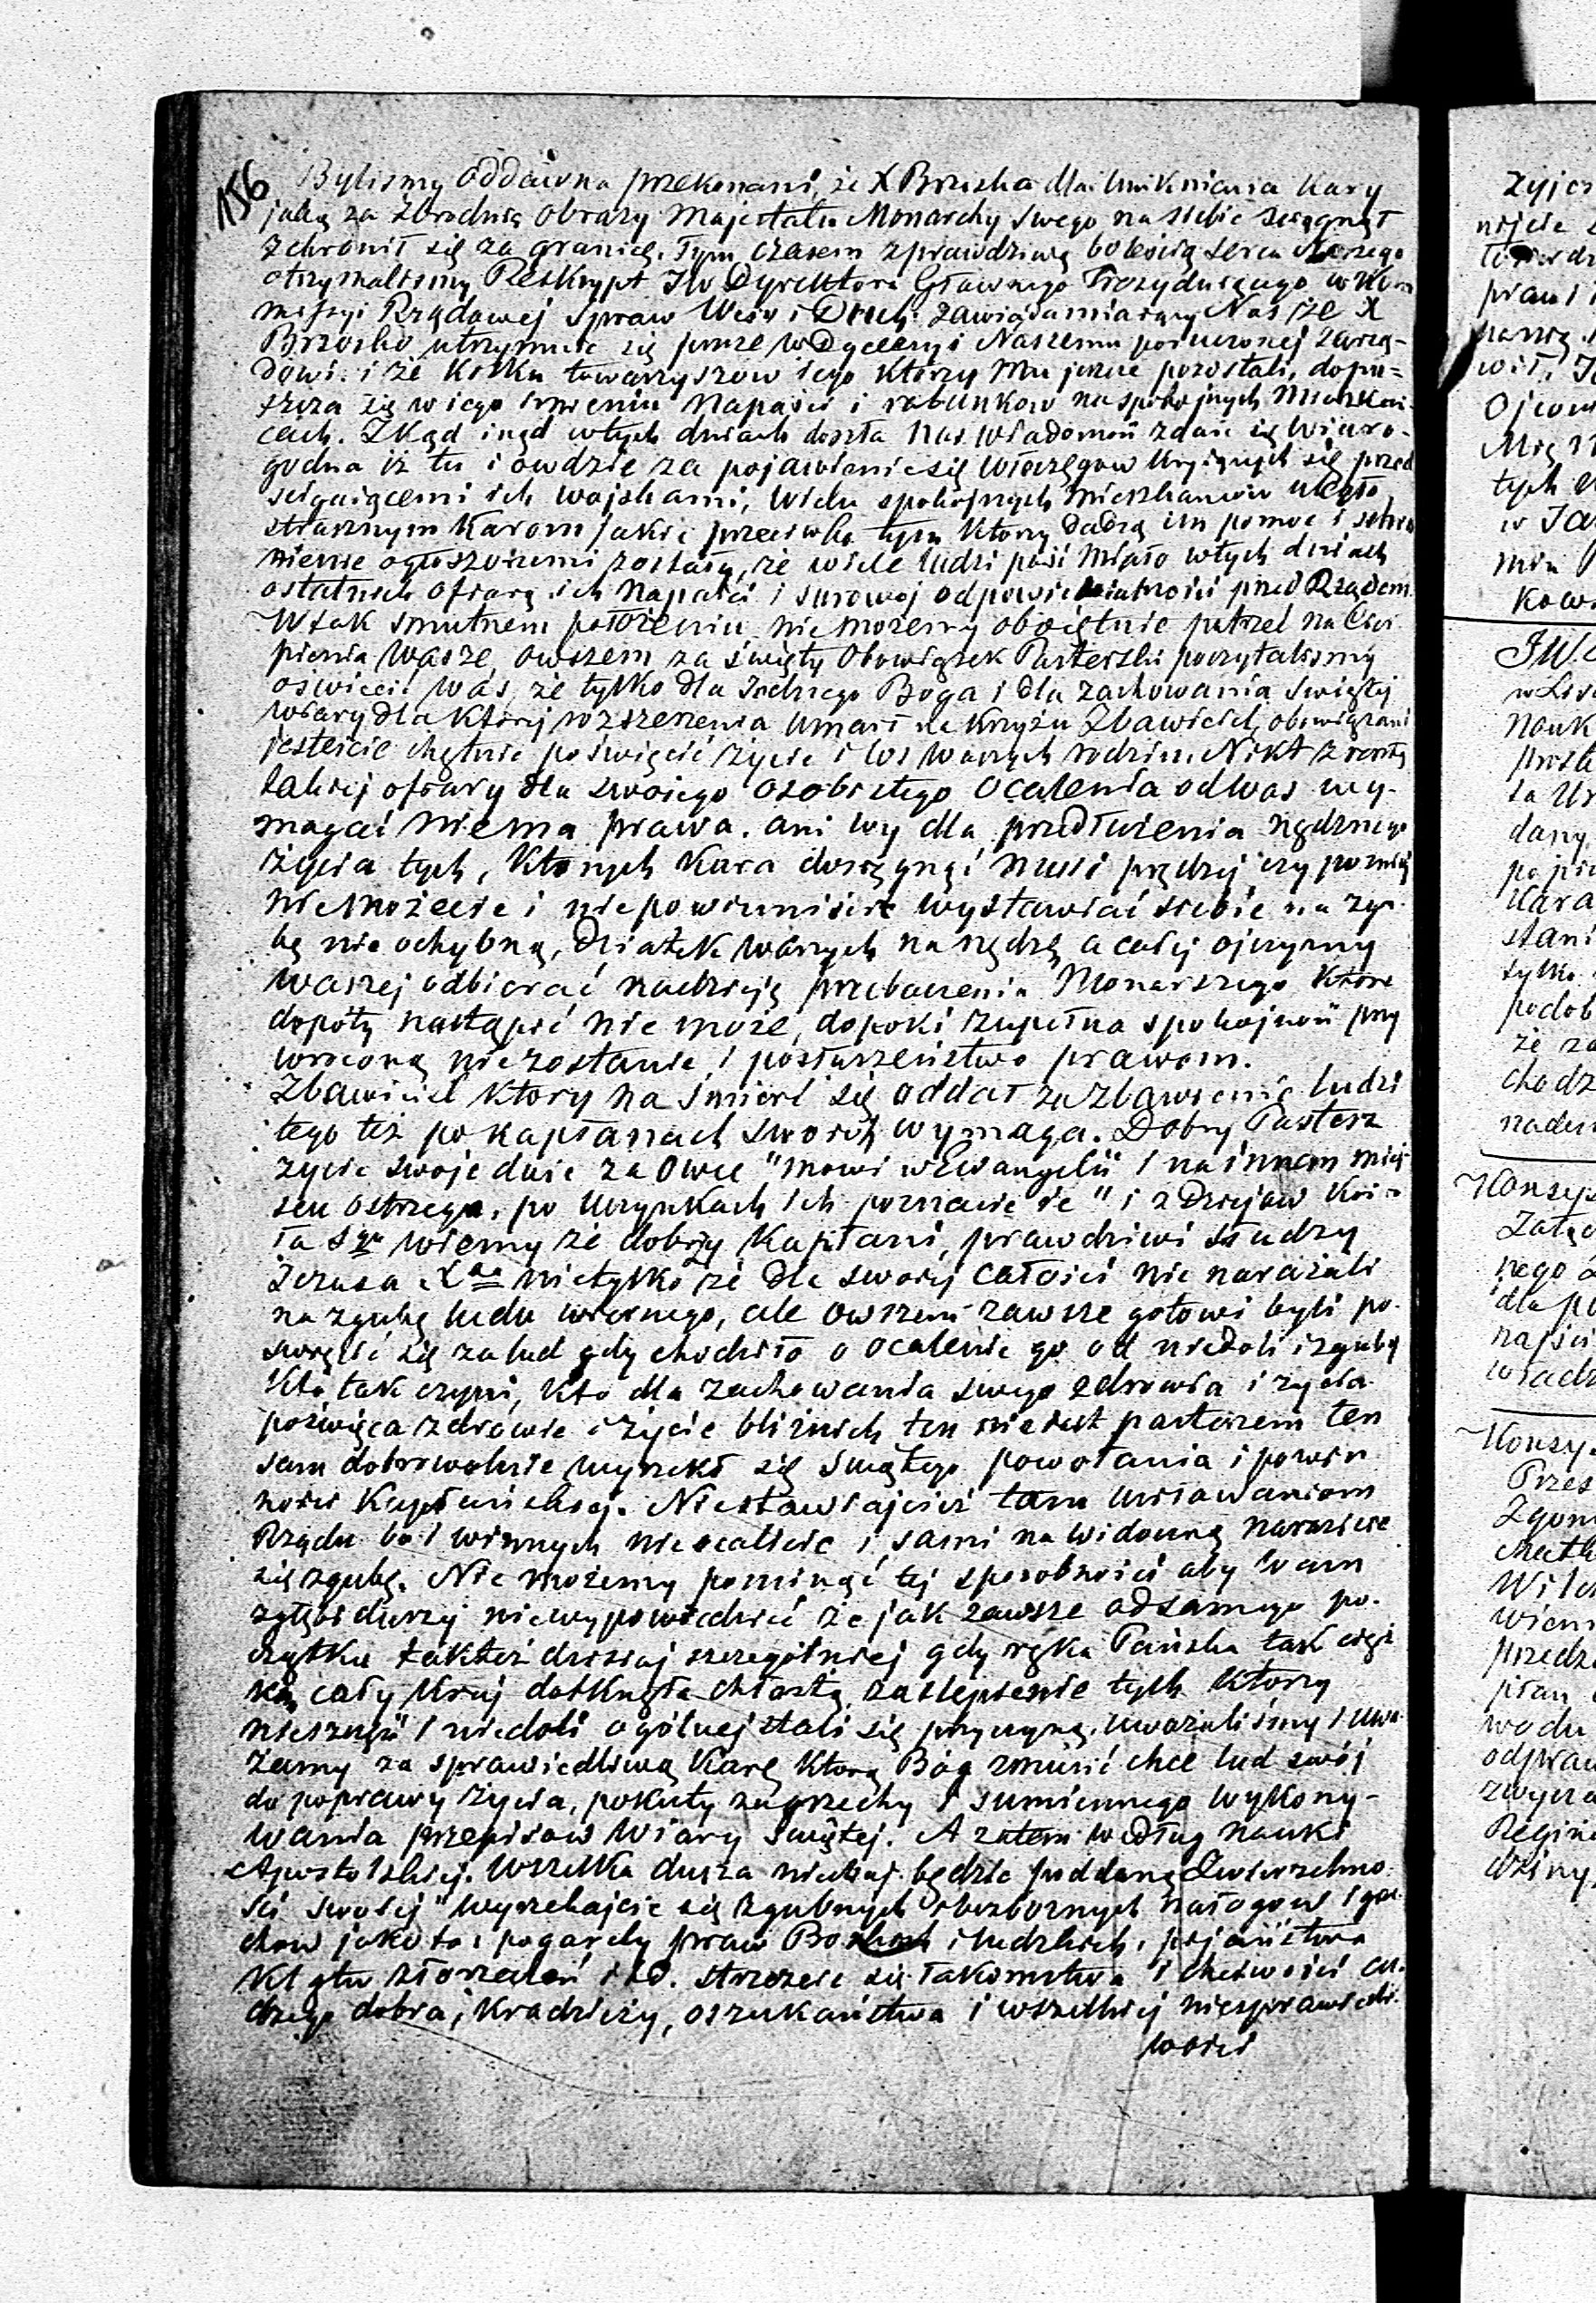 156
Bylismy oddawna przekonani, że X Brzuska dla uniknienia kary
jaką za zbrodnią obrazy Majestatu Monarchy swego na siebie sciągnął
zchronił się za granicę. Tym czasem z prawdziwą boleścią serca Naszego
otrzymalismy Reskrypt JW Dyrektora Głównego Prezydującego w Kom
missyi Rządowej Spraw Wew i Duch: zawiadamiający Nas że X
Brzosko utrzymuie się jeszcze w Dyecezyi Naszemu poruczonej zarzą-
dowi. i że kilku towarzyszow iego którzy mu jeszcze pozostali, dopu=
szcza się w iego imieniu napaści i rabunkow na spokojnych mieszkań-
cach. Zkąd inąd w tych dniach doszła nas wiadomość zdaie się wiaro-
godna iż tu i owdzie za pojawienie się włóczęgow kryiących się przed
scigaiącemi ich wojskami, wielu spokojnych mieszkancow uległo
strasznym karom jakie przeciwko tym którzy dadzą im pomoc i schro
nienie ogłoszonemi zostały, że wiele ludzi paść miało w tych dniach
ostatnich ofiarą ich napaści i surowej odpowiedzialności przed Rządem.
W tak smutnem położeniu, nie możemy oboiętnie patrzeć na Cier
pienia Wasze, owszem za święty obowiązek Pasterski poczytalismy
oświecić was, że tylko dla Jednego Boga i dla zachowania świętej
wiary dla której rozszerzenia umarł na krzyżu Zbawiciel, obowiązani
jesteście chętnie poświęcić życie i los waszych rodzin. Nikt zresztą
takiej ofiary dla swoiego osobistego ocalenia od was wy-
magać niema prawa. ani wy dla przedłużenia nędznego
życia tych, których kara dosięgnąć musi prędzej czy poźniej
niemożecie i niepowinniście wystawiać siebie na zgu-
bę nieochybną, dziatek waszych na nędzę a całej ojczyzny
waszej odbierać nadzieję przebaczenia Monarszego które
dopóty nastąpić nie może, dopoki zupełna spokojność przy
wroconą niezostanie i posłuszeństwo prawom.
Zbawiciel który na śmierć się oddał za zbawienie ludzi
tego też po kapłanach swoich wymaga. Dobry Pasterz
życie swoje daie za owce "mowi w Ewangelii i na innem miej-
scu ostrzega, po uczynkach ich poznacie ie" i z Dziejow Koś-
ła Sgo wiemy że dobrzy Kapłani, prawdziwi słudzy
Jezusa Xsa nietylko że dla swoiej całości nie narażali
na zgubę ludu wiernego, ale owszem zawsze gotowi byli po-
święcić się za lud gdy chodziło o ocalenie go od niedoli i zguby
Kto tak czyni, kto dla zachowania swego zdrowia i życia
poświęca zdrowie i życie bliźnich ten nie iest pasterzem ten
sam dobrowolnie wyrzekł się świętego powołania i powin
ności Kapłańskiej. Niestawiajcież tam usiłowaniom
Rządu bo i winnych nieocalicie i sami na widoczną narazicie
się zgubę. Nie możemy pominąć tej sposobności aby wam
z głębi duszy niewypowiedzieć że jak zawsze od samego po-
czątku także dzisiaj szczególniej gdy ręka Pańska tak cięż
ką cały kraj dotknęła chłostą zaslepienie tych którzy
nieszczęść i niedoli ogólnej stali się przyczyną, uważaliśmy i uwa-
żamy za sprawiedliwą karę którą Bóg zmusić chce lud swój
do poprawy życia, pokuty za grzechy i sumiennego wykony-
wania przepisow Wiary świętej. A zatem według nauki
Apostolskiej. Wszelka dusza niechaj będzie poddaną Zwierzchno
ści swoiej" wyrzekajcie się zgubnych i bezbożnych nałogow i grze-
chow jako to: pogardy praw Boskich i ludzkich, pijaństwa
klątw złorzeczeń itd. strzeżcie się łakomstwa i chciwości cu-
dzego dobra, kradzieży, oszukaństwa i wszelkiej niesprawiedli-
wości